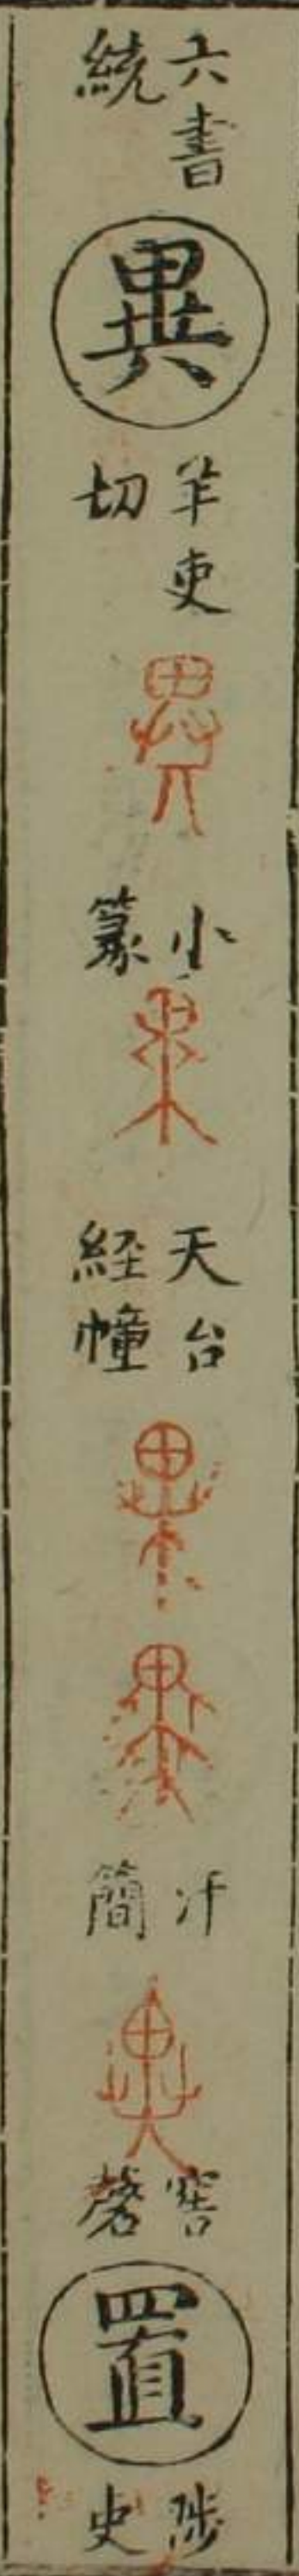 六書
統
異
羊吏
切
小
篆
天台
経幢
汗
簡
窖
磬
置
陟
吏